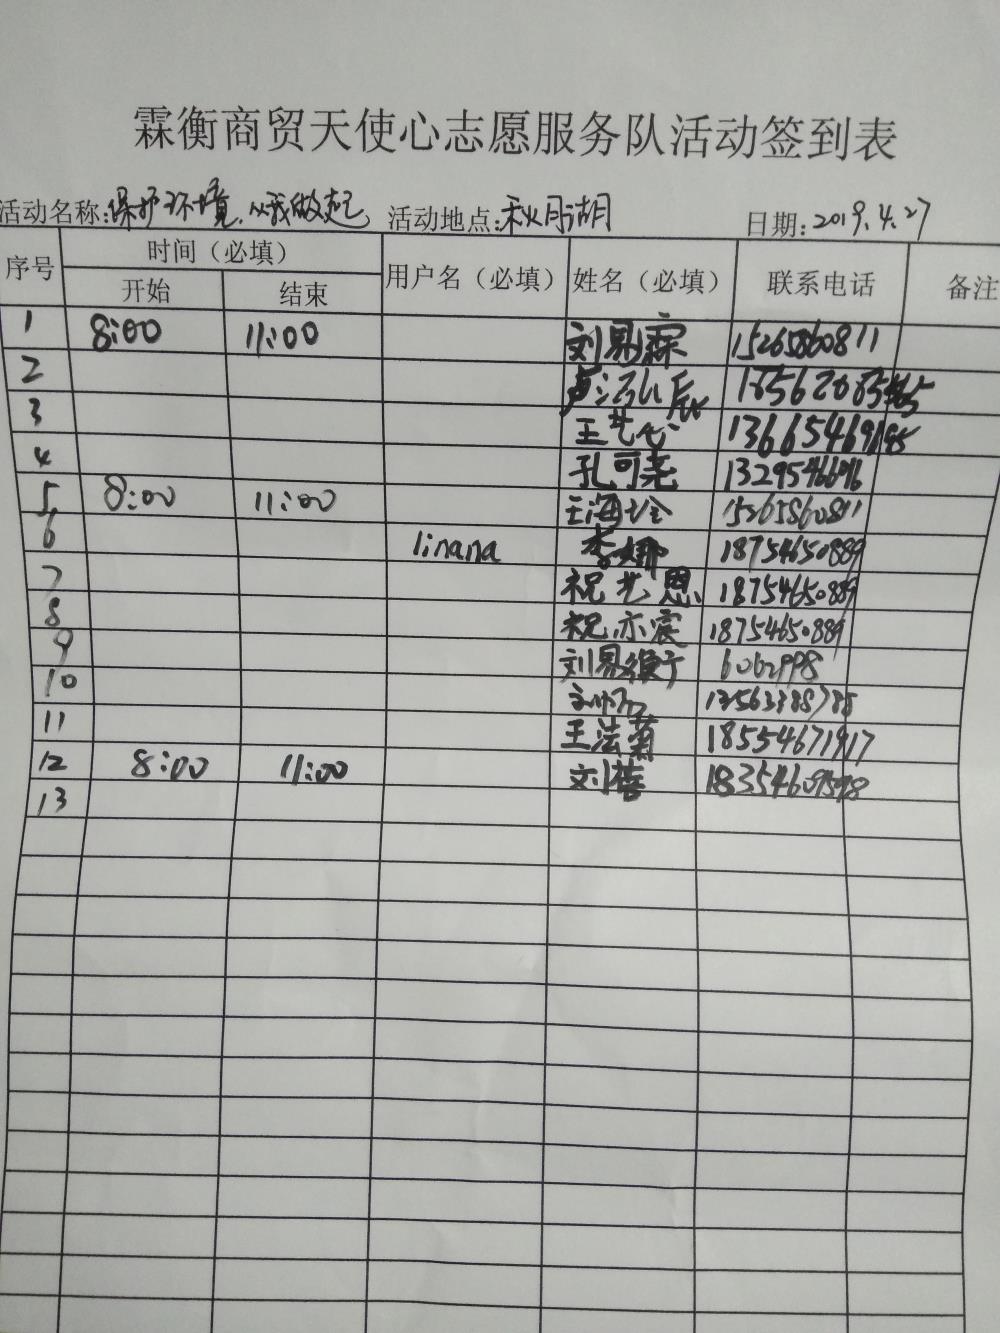 霖衡商贸天使心志愿服务队活动签到表
活动名称:保护环境,从我做起 活动地点:秋月湖 日期:2019.4.27
序号 时间（必填） 用户名（必填） 姓名（必填） 联系电话 备注
开始 结束
1 8:00 11:00 刘易霖 15265860811
2
3 王艺心
4 孔可尧
5 8:00 11:00 王海 15265860811
6 linana 李娜 18754650889
7 祝艺恩 18754650889
8 祝亦震 18754650889
9 刘易 6062998
10
11 王法菊 18554671917
12 8:00 11:00 刘蓓
13